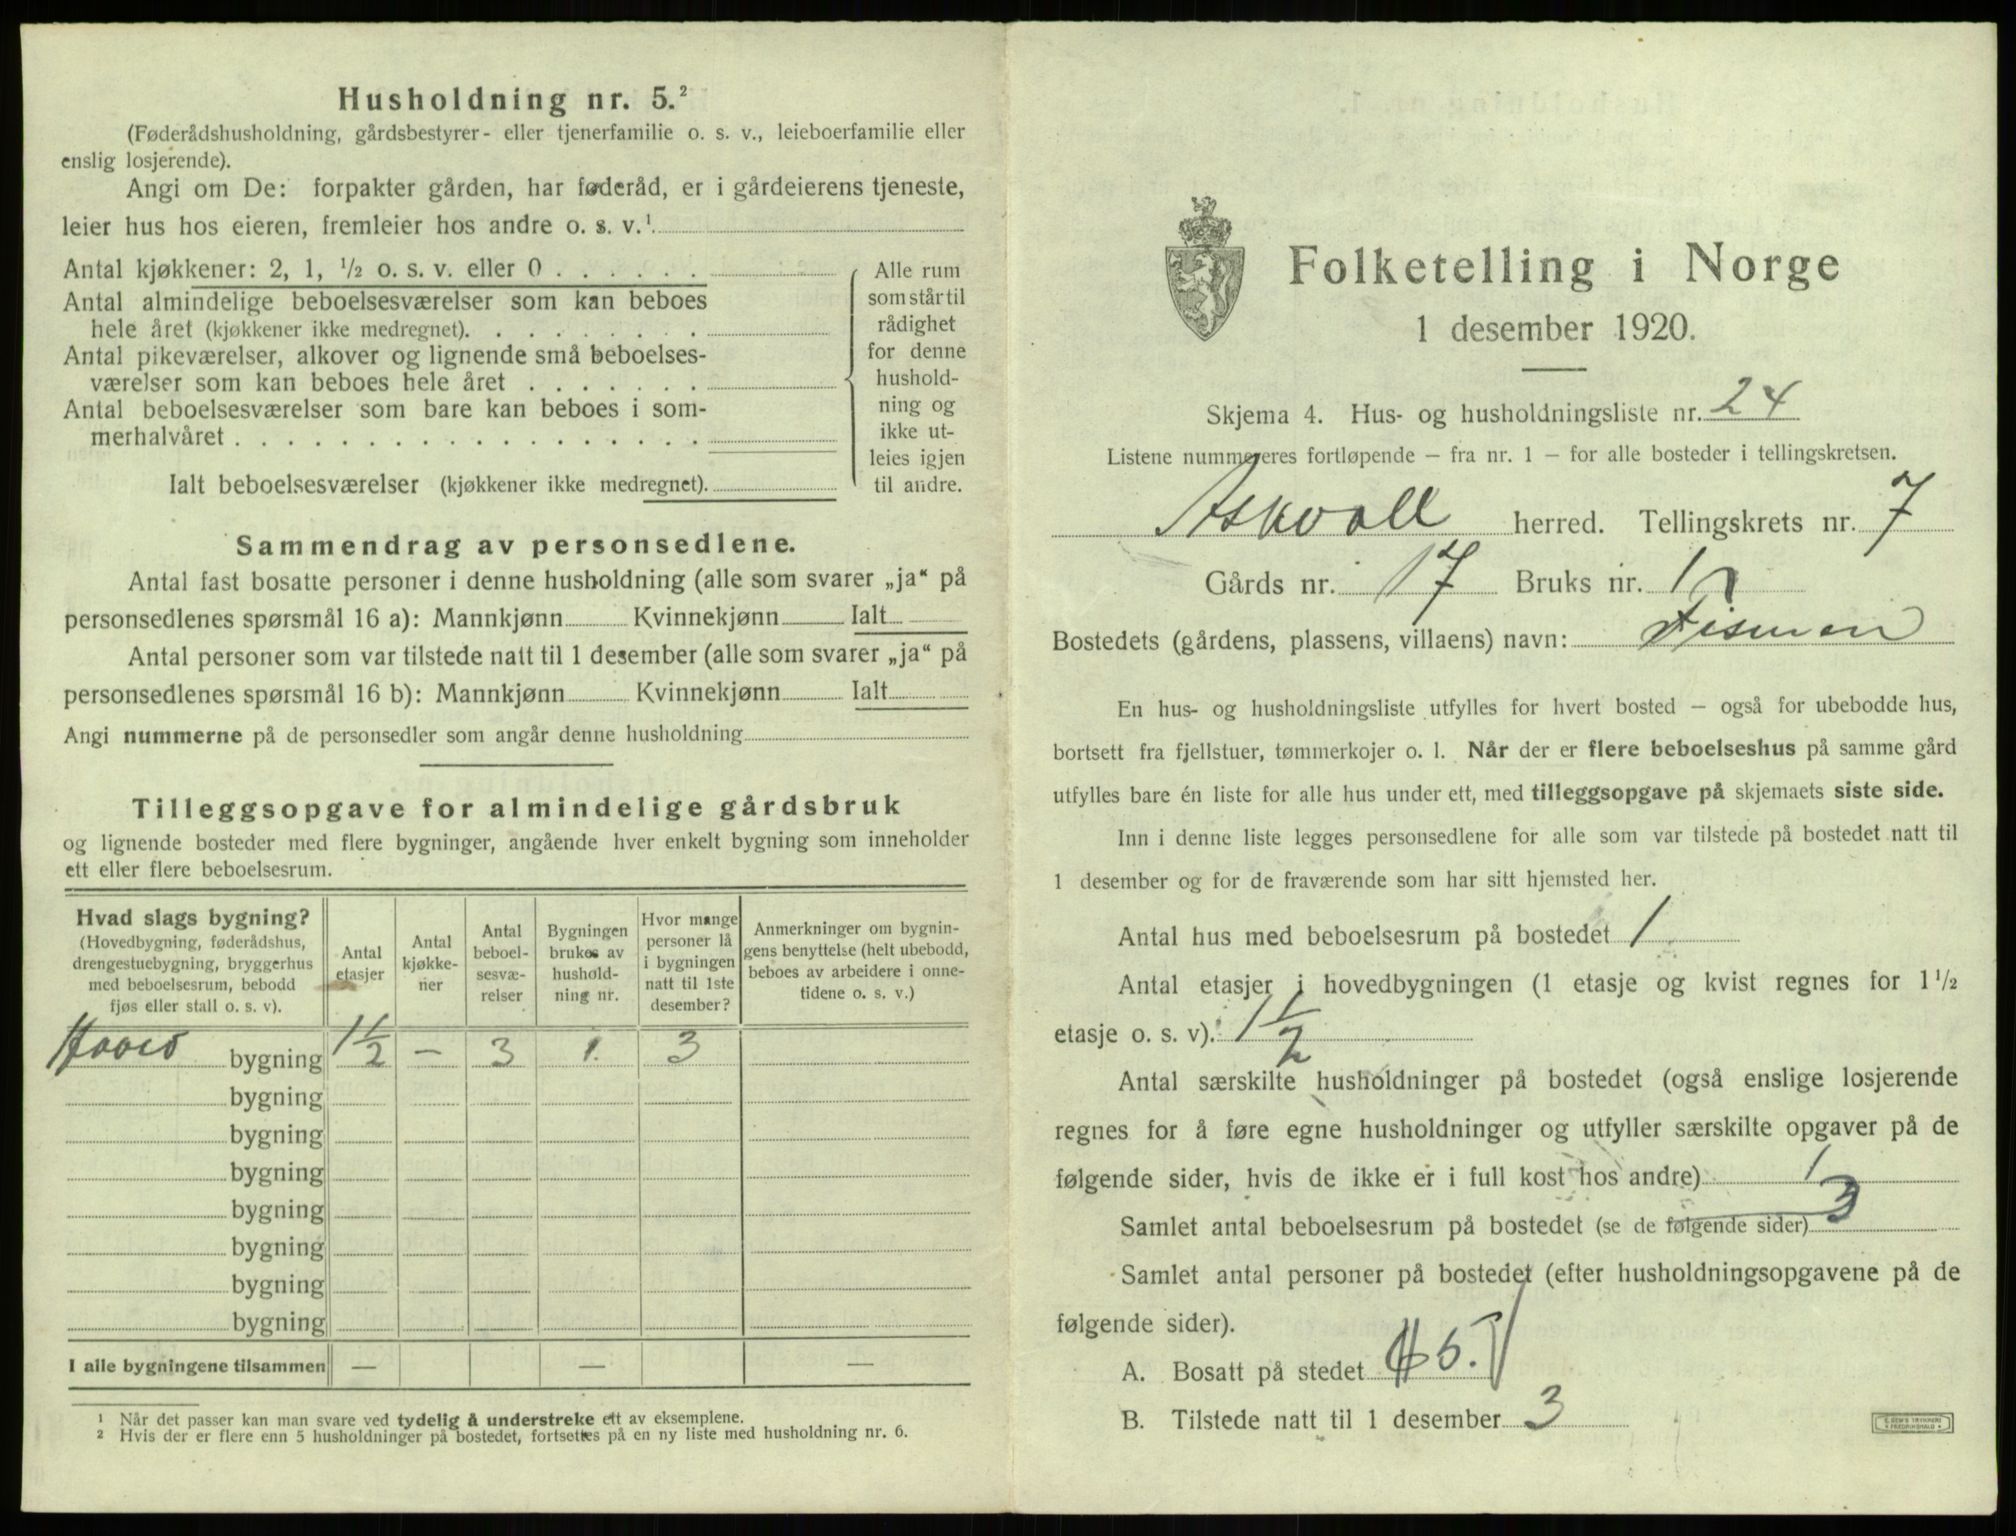 Husholdning nr. 5.²
(Føderådshusholdning, gårdsbestyrer- eller tjenerfamilie o. s. v., leieboerfamilie eller
enslig losjerende).
Angi om De: forpakter gården, har føderåd, er i gårdeierens tjeneste,
leier hus hos eieren, fremleier hos andre o. s. v.¹
Antal kjøkkener: 2, 1, ½ o. s. v. eller 0 . . . . . .
Antal almindelige beboelsesværelser som kan beboes
hele året (kjøkkener ikke medregnet). . . . . . . . .
Antal pikeværelser, alkover og lignende små beboelses-
værelser som kan beboes hele året . . . . . . .
Antal beboelsesværelser som bare kan beboes i som-
merhalvåret . . . . . . . . . . . . . . . . .
Ialt beboelsesværelser (kjøkkener ikke medregnet).
Alle rum
som står til
rådighet
for denne
hushold-
ning og
ikke ut-
leies igjen
til andre.
Sammendrag av personsedlene.
Antal fast bosatte personer i denne husholdning (alle som svarer „ja“ på
personsedlenes spørsmål 16 a): Mannkjønn Kvinnekjønn Ialt
Antal personer som var tilstede natt til 1 desember (alle som svarer „ja“ på
personsedlenes spørsmål 16 b): Mannkjønn Kvinnekjønn Ialt
Angi nummerne på de personsedler som angår denne husholdning
Tilleggsopgave for almindelige gårdsbruk
og lignende bosteder med flere bygninger, angående hver enkelt bygning som inneholder
ett eller flere beboelsesrum.
Hvad slags bygning?
(Hovedbygning, føderådshus,
drengestuebygning, bryggerhus
med beboelsesrum, bebodd
fjøs eller stall o. s. v).
Antal
etasjer
Antal
kjøkke-
ner
Antal
beboel-
sesvæ-
relser
Bygningen
brukes av
hushold-
ning nr.
Hvor mange
personer lå
i bygningen
natt til 1ste
desember?
Anmerkninger om bygnin-
gens benyttelse (helt ubebodd,
beboes av arbeidere i onne-
tidene o. s. v.)
Hoved bygning 1½ – 3 1. 3
bygning
bygning
bygning
bygning
bygning
bygning
bygning
I alle bygningene tilsammen — — —
¹ Når det passer kan man svare ved tydelig å understreke ett av eksemplene.
² Hvis der er flere enn 5 husholdninger på bostedet, fortsettes på en ny liste med husholdning nr. 6.
Folketelling i Norge
1 desember 1920.
Skjema 4. Hus- og husholdningsliste nr. 24
Listene nummereres fortløpende – fra nr. 1 – for alle bosteder i tellingskretsen.
Askvoll herred. Tellingskrets nr. 7
Gårds nr. 17 Bruks nr.
Bostedets (gårdens, plassens, villaens) navn:
En hus- og husholdningsliste utfylles for hvert bosted – også for ubebodde hus,
bortsett fra fjellstuer, tømmerkojer o. l. Når der er flere beboelseshus på samme gård
utfylles bare én liste for alle hus under ett, med tilleggsopgave på skjemaets siste side.
Inn i denne liste legges personsedlene for alle som var tilstede på bostedet natt til
1 desember og for de fraværende som har sitt hjemsted her.
Antal hus med beboelsesrum på bostedet 1
Antal etasjer i hovedbygningen (1 etasje og kvist regnes for 1½
etasje o. s. v). 1½
Antal særskilte husholdninger på bostedet (også enslige losjerende
regnes for å føre egne husholdninger og utfyller særskilte opgaver på de
følgende sider, hvis de ikke er i full kost hos andre) 1
Samlet antal beboelsesrum på bostedet (se de følgende sider) 3
Samlet antal personer på bostedet (efter husholdningsopgavene på de
følgende sider).
A. Bosatt på stedet 5.
B. Tilstede natt til 1 desember 3